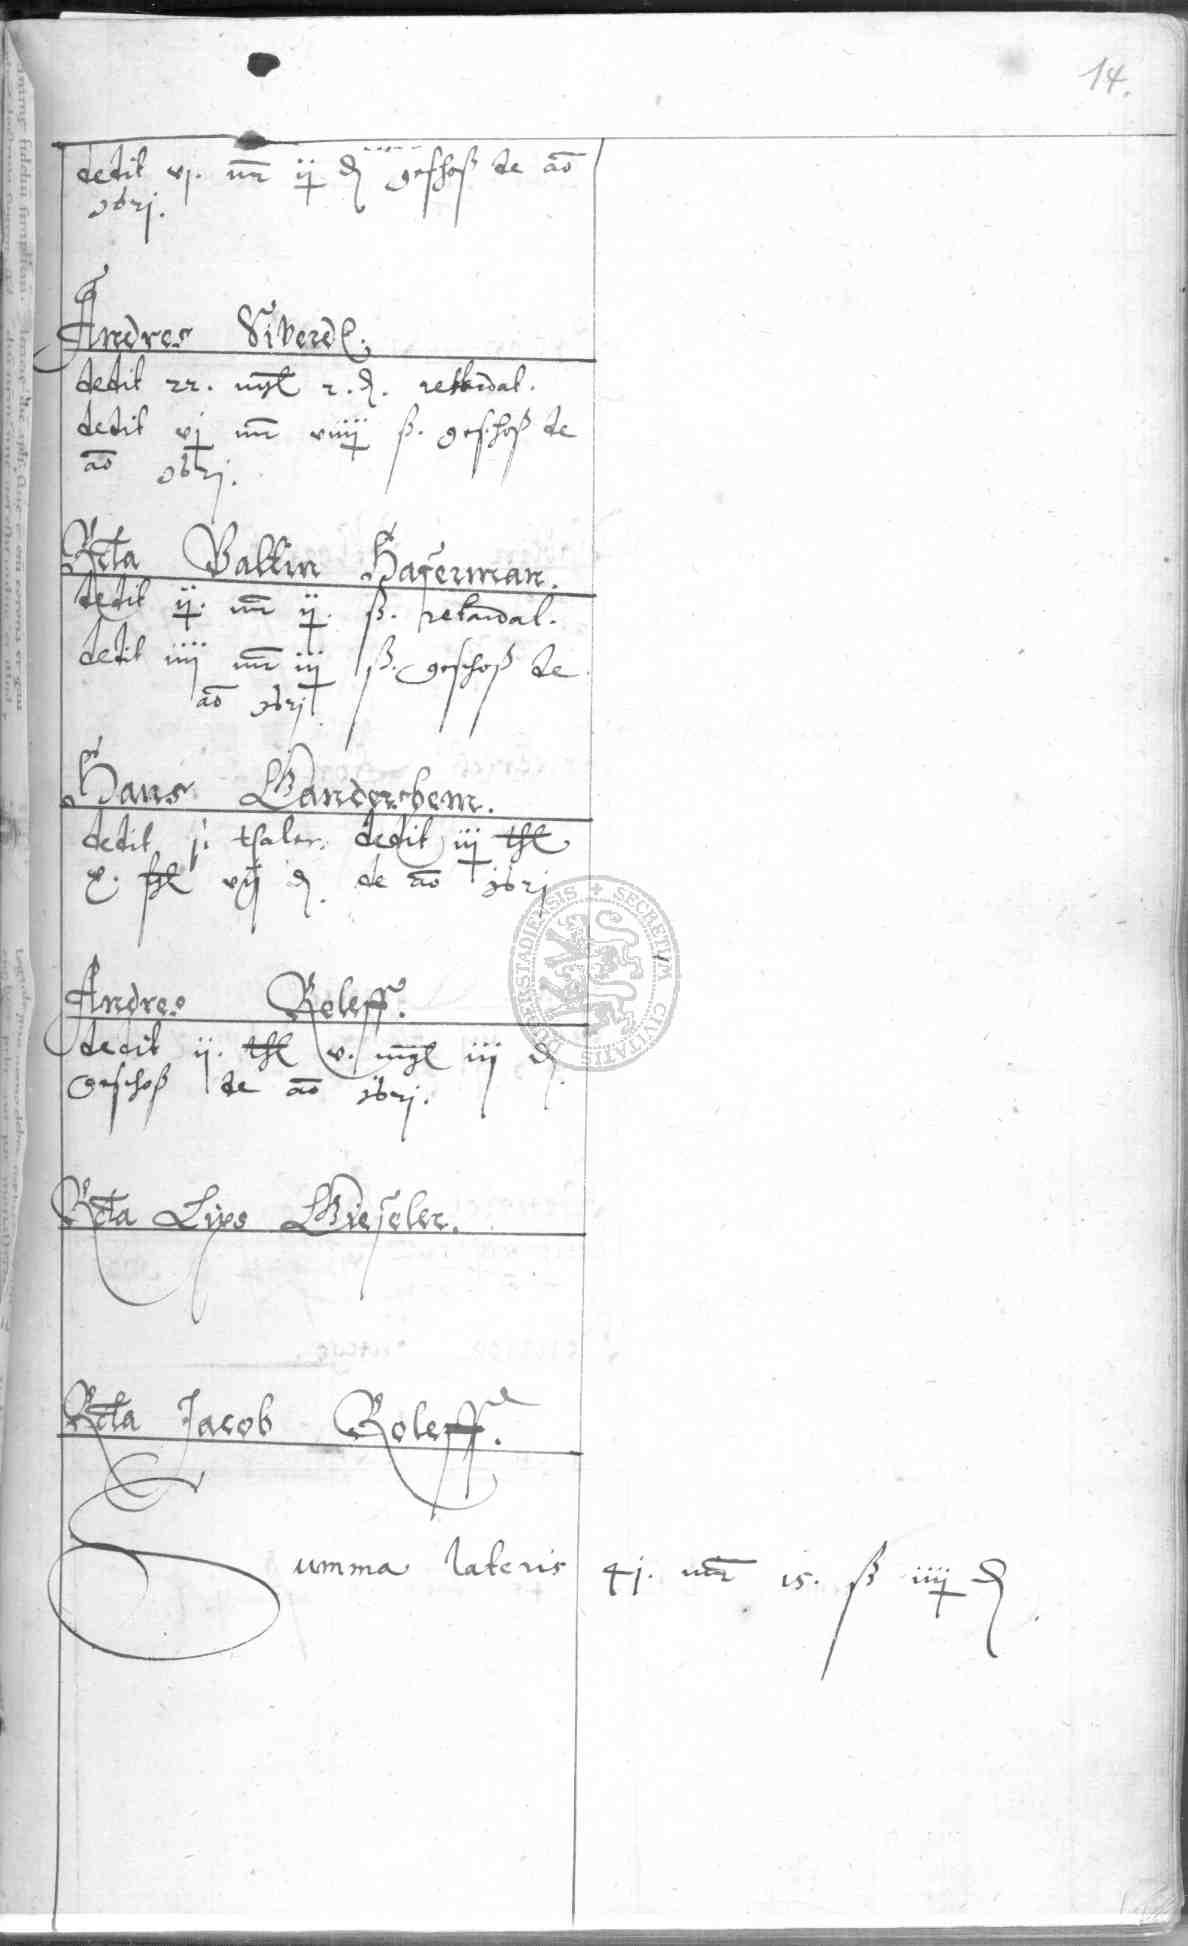 14.
dedit vj. mr ij ₰ geschoß de ao
Andres Siverdes.
dedit 22. mgl 2. ₰. retardal.
dedit vj mr viiij ß. geschoß de
ao
Rcta Valtin Haferman.
dedit ij. mr ij. ß. retardal.
dedit iiij mr iij ß. geschoß de
ao
Hans Wandersbem.
dedit j. thaler. dedit iij thl
x. vij ₰ de ao
Andres Roleff.
dedit ij. thl v. mgl iij ₰
geschoß de ao
Rcta Lips Wieseler.
Rcta Jacob Roleff.
Summa lateris 41. mr 15. ß iiij ₰
SECRETUM CIVITATIS DUDERSTADIENSIS